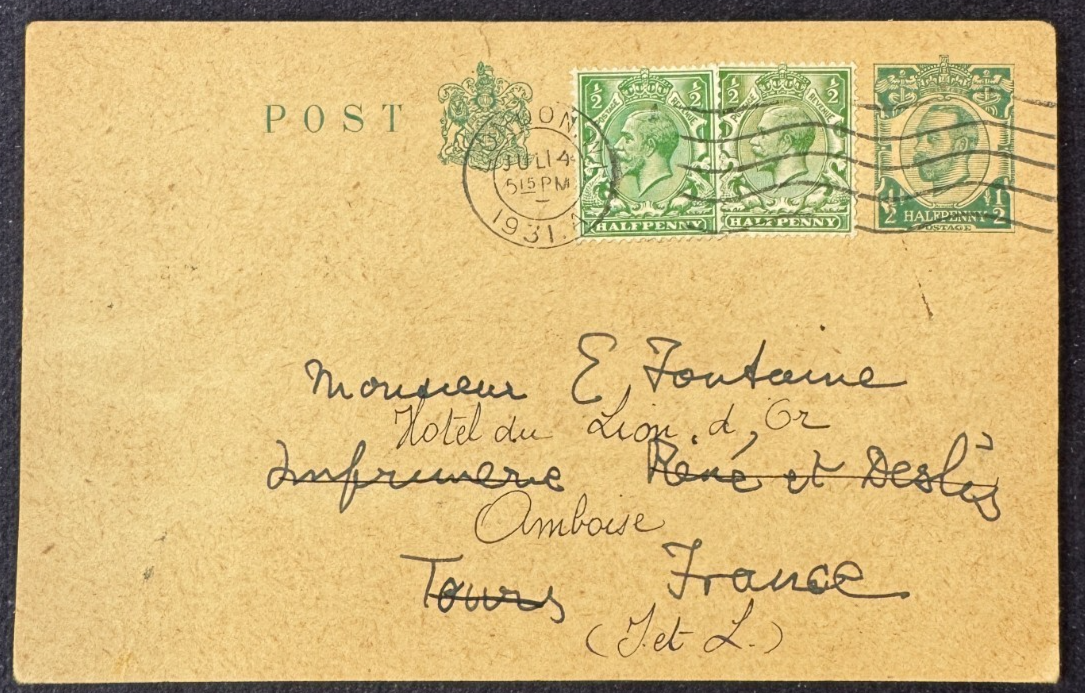 POST
LONDON. N.1
JUL 14
5 15 PM
1931. A
½ ½
POSTAGE REVENUE
HALFPENNY
½ ½
POSTAGE REVENUE
HALFPENNY
½ 1/2
HALFPENNY
POSTAGE
Monsieur E, Fontaine
Hotel du Lion. d, Or
Imprimerie René et Deslis
Amboise
Tours France
(I. et L.)